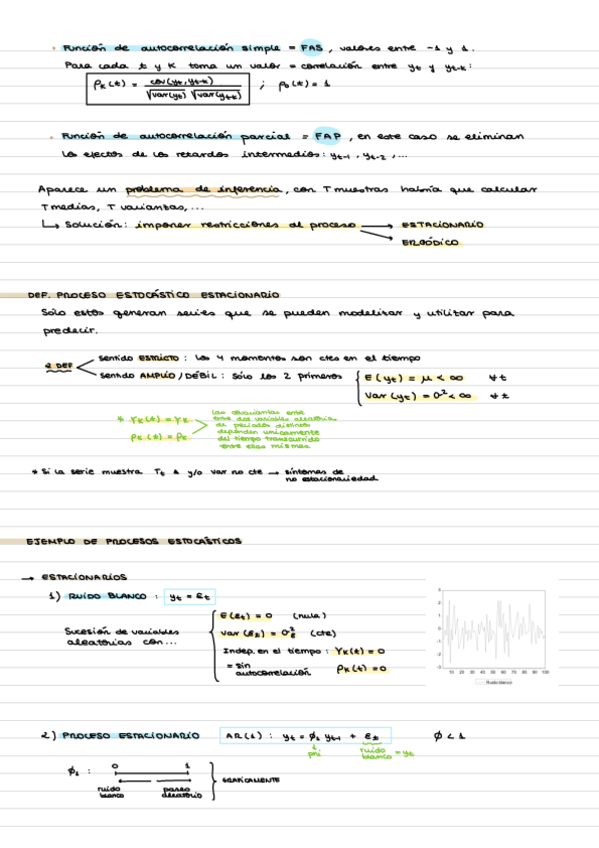 • Función de autocorrelación simple = FAS, valores entre -1 y 1.
Para cada t y K toma un valor = correlación entre yt y yt-k:
ρk(t) = cov(yt, yt-k) / √var(yt) √var(yt-k) ; ρ0(t) = 1
• Función de autocorrelación parcial = FAP, en este caso se eliminan
los efectos de los retardos intermedios: yt-1, yt-2, ...
Aparece un problema de inferencia, con T muestras habría que calcular
T medias, T varianzas, ...
↳ Solución: imponer restricciones al proceso → ESTACIONARIO
→ ERGÓDICO
DEF. PROCESO ESTOCÁSTICO ESTACIONARIO
Solo estos generan series que se pueden modelizar y utilizar para
predecir.
2 DEF
sentido ESTRICTO: los 4 momentos son ctes en el tiempo
sentido AMPLIO/DÉBIL: sólo los 2 primeros { E(yt) = μ < ∞ ∀t
Var(yt) = σ² < ∞ ∀t
* γk(t) = γk
ρk(t) = ρk
las covarianzas entre
entre dos variables aleatorias
de periodos distintos
dependen unicamente
del tiempo transcurrido
entre ellas mismas
* Si la serie muestra Tt y/o var no cte → síntomas de
no estacionariedad
EJEMPLO DE PROCESOS ESTOCÁSTICOS
→ ESTACIONARIOS
1) RUIDO BLANCO: yt = εt
Sucesión de variables
aleatorias con...
E(εt) = 0 (nula)
Var(εt) = σ²ε (cte)
Indep. en el tiempo: γk(t) = 0
= sin
autocorrelación ρk(t) = 0
3
2
1
0
-1
-2
-3
10 20 30 40 50 60 70 80 90 100
Ruido blanco
2) PROCESO ESTACIONARIO AR(1): yt = ϕ1 yt-1 + εt ϕ < 1
phi
ruido
blanco = yt
ϕ1: 0 1
ruido
blanco
paseo
aleatorio
GRÁFICAMENTE